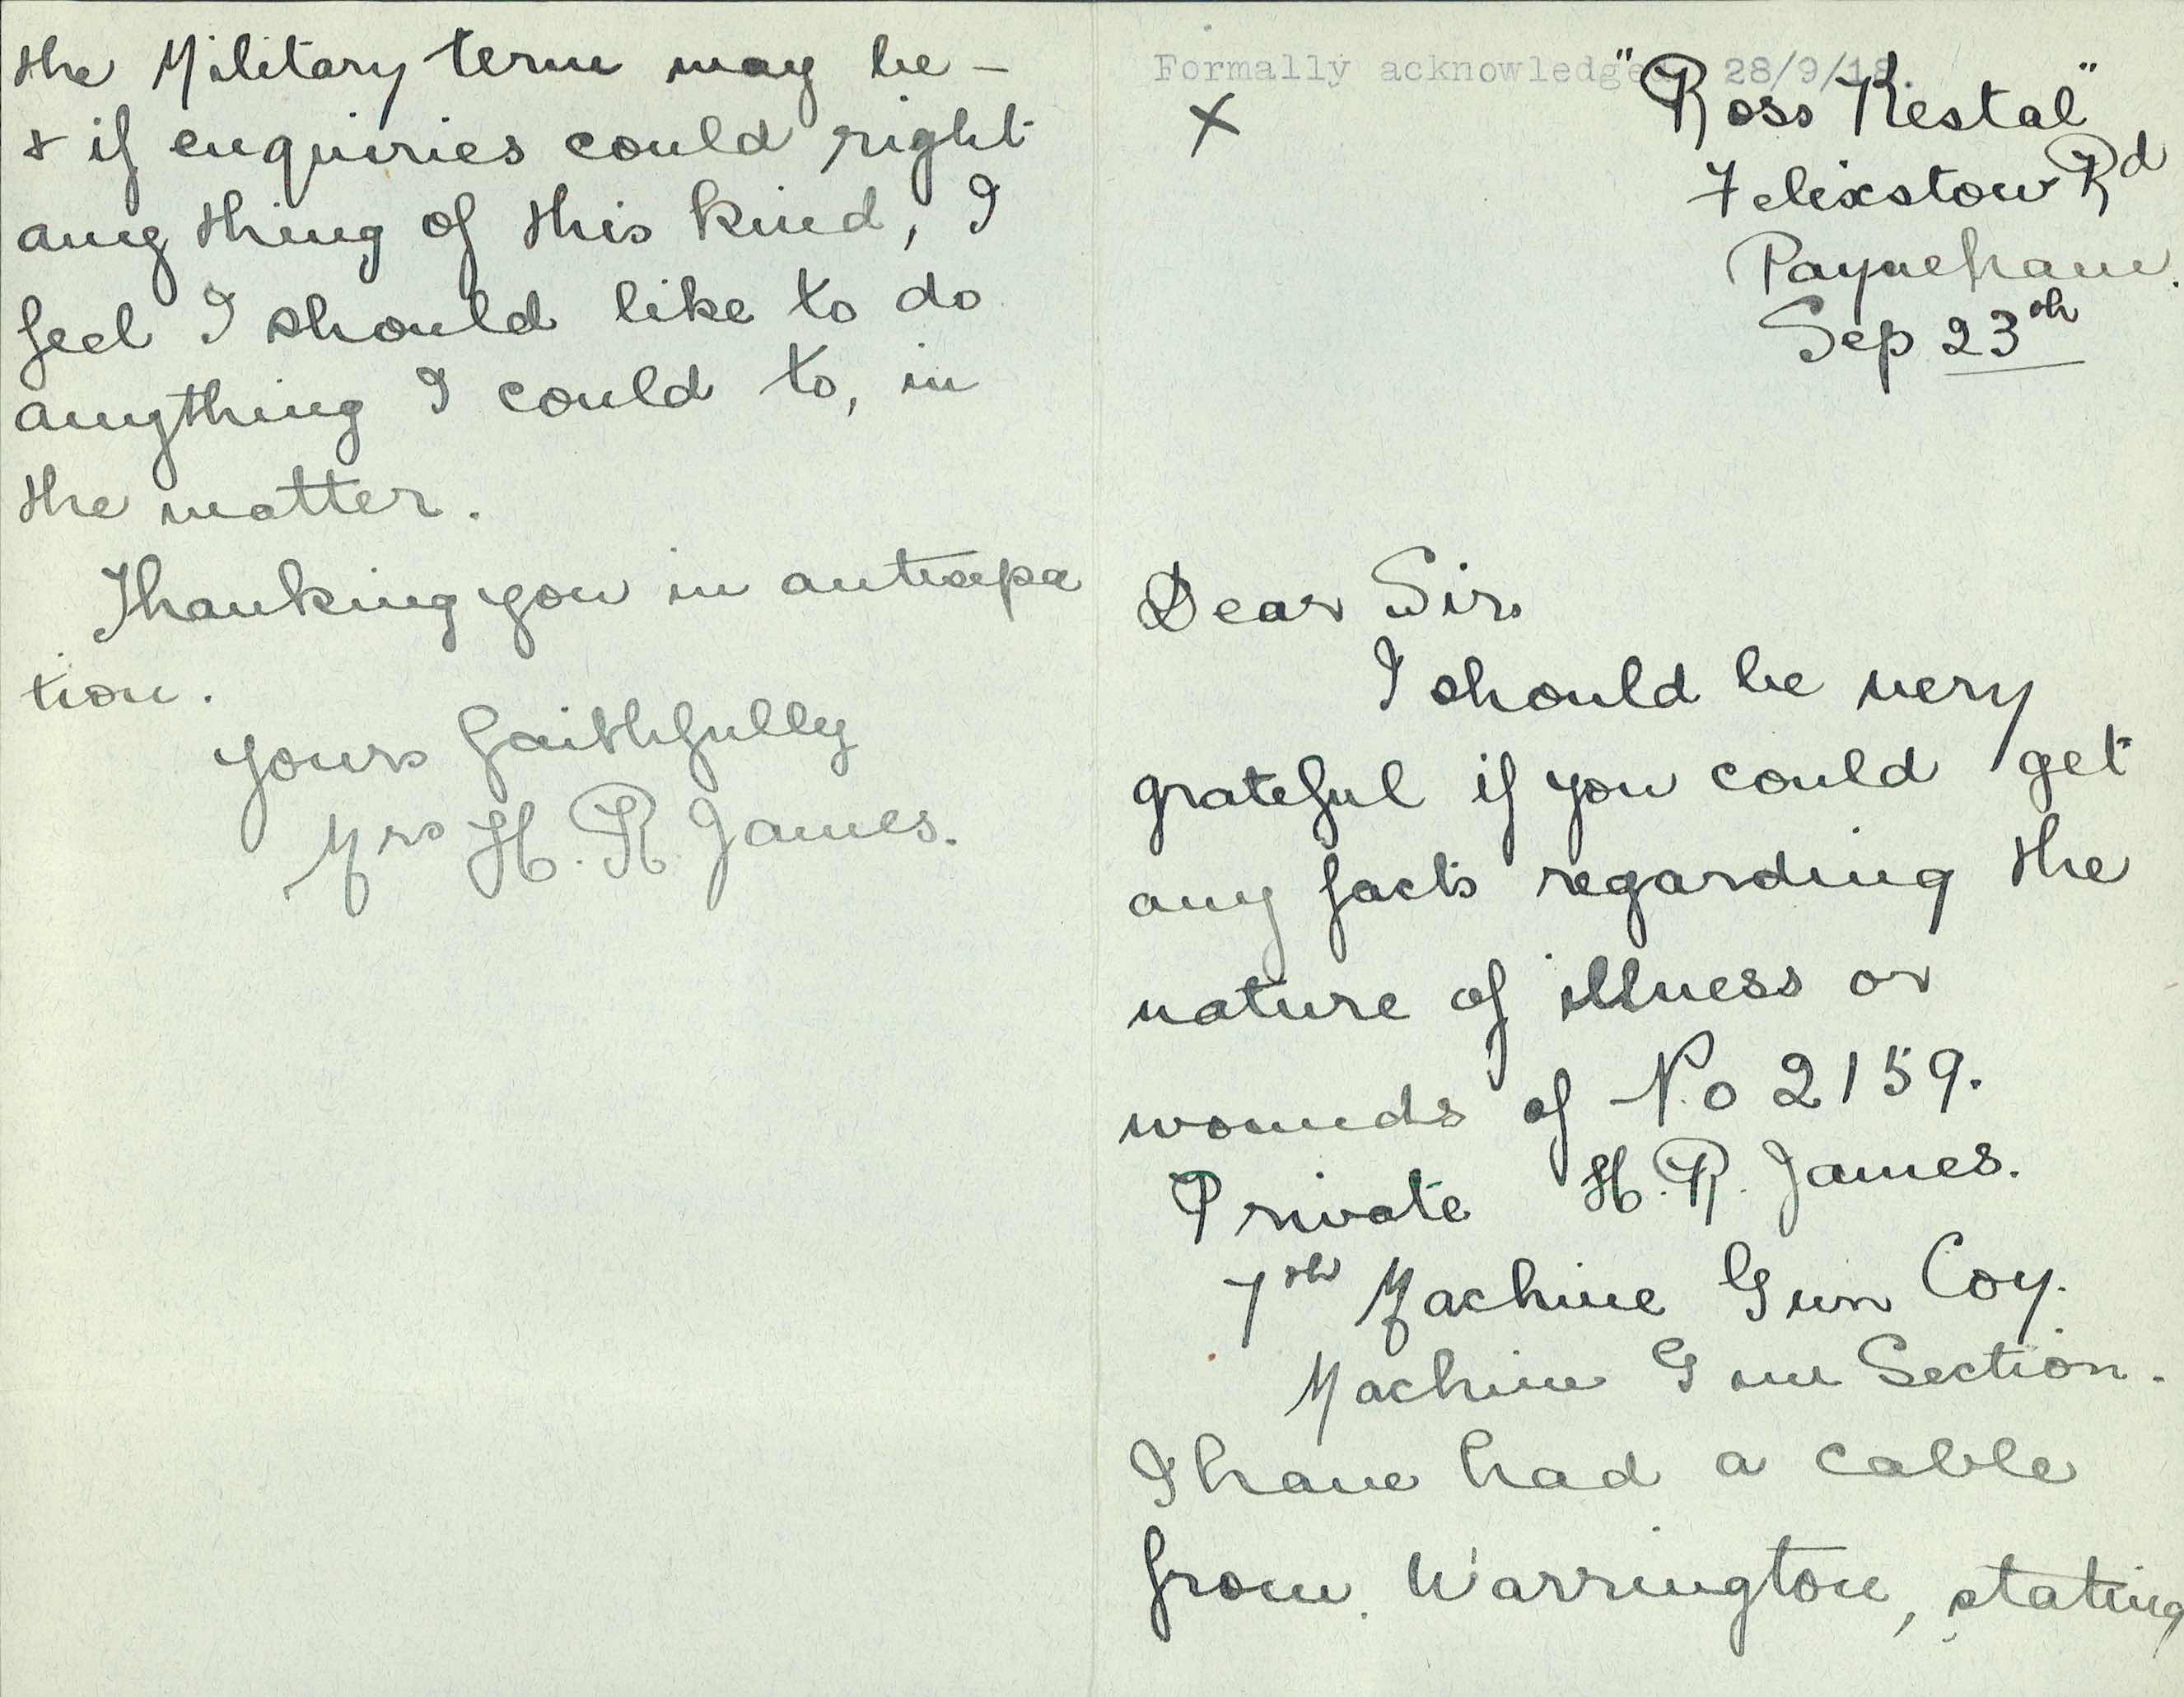 the Military term may be –
& if enquiries could right
any thing of this kind, I
feel I should like to do
anything I could to, in
the matter.
Thanking you in antisepa
tion.
Yours faithfully
Mrs H. R. James.
Formally acknowledged 28/9/18.
X
"Ross Restal"
Felixstow Rd
Payneham.
Sep 23th
Dear Sir
I should be very
grateful if you could get
any facts regarding the
nature of illness or
wounds of No 2159.
Private H. R. James.
7th Machine Gun Coy.
Machine Gun Section.
I have had a cable
from Warrington, stating